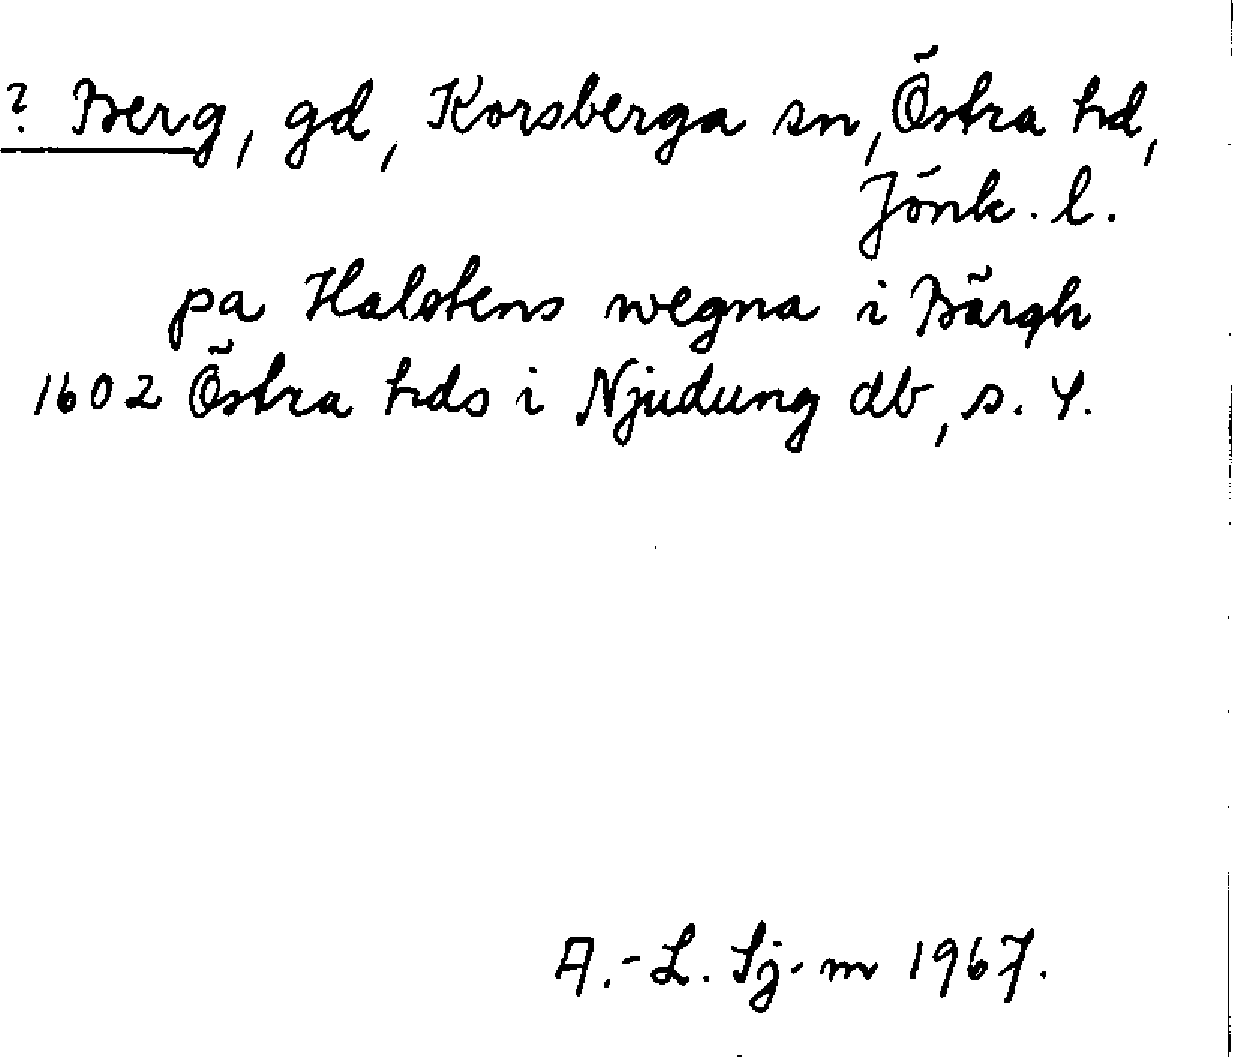 ? Berg, gd, Korsberga sn, Östra hd,
Jönk. l.
pa Halstens wegna i Bärgh
1602 Östra hds i Njudung db, s. 4.
A.-L. Sj-m 1967.